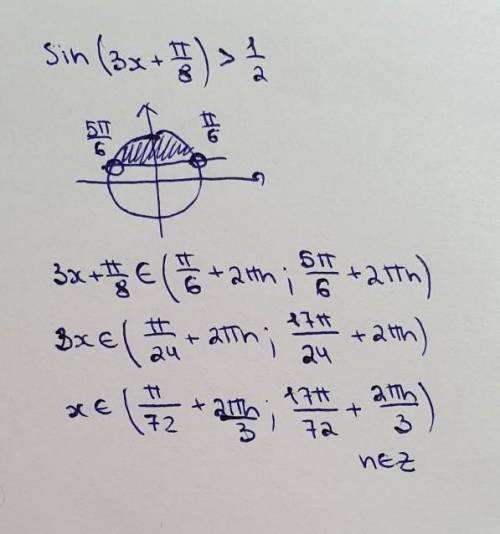 sin(3x + π/8) > 1/2
5π/6 π/6
3x + π/8 ∈ (π/6 + 2πn ; 5π/6 + 2πn)
3x ∈ (π/24 + 2πn ; 17π/24 + 2πn)
x ∈ (π/72 + 2πn/3 ; 17π/72 + 2πn/3)
n∈Z